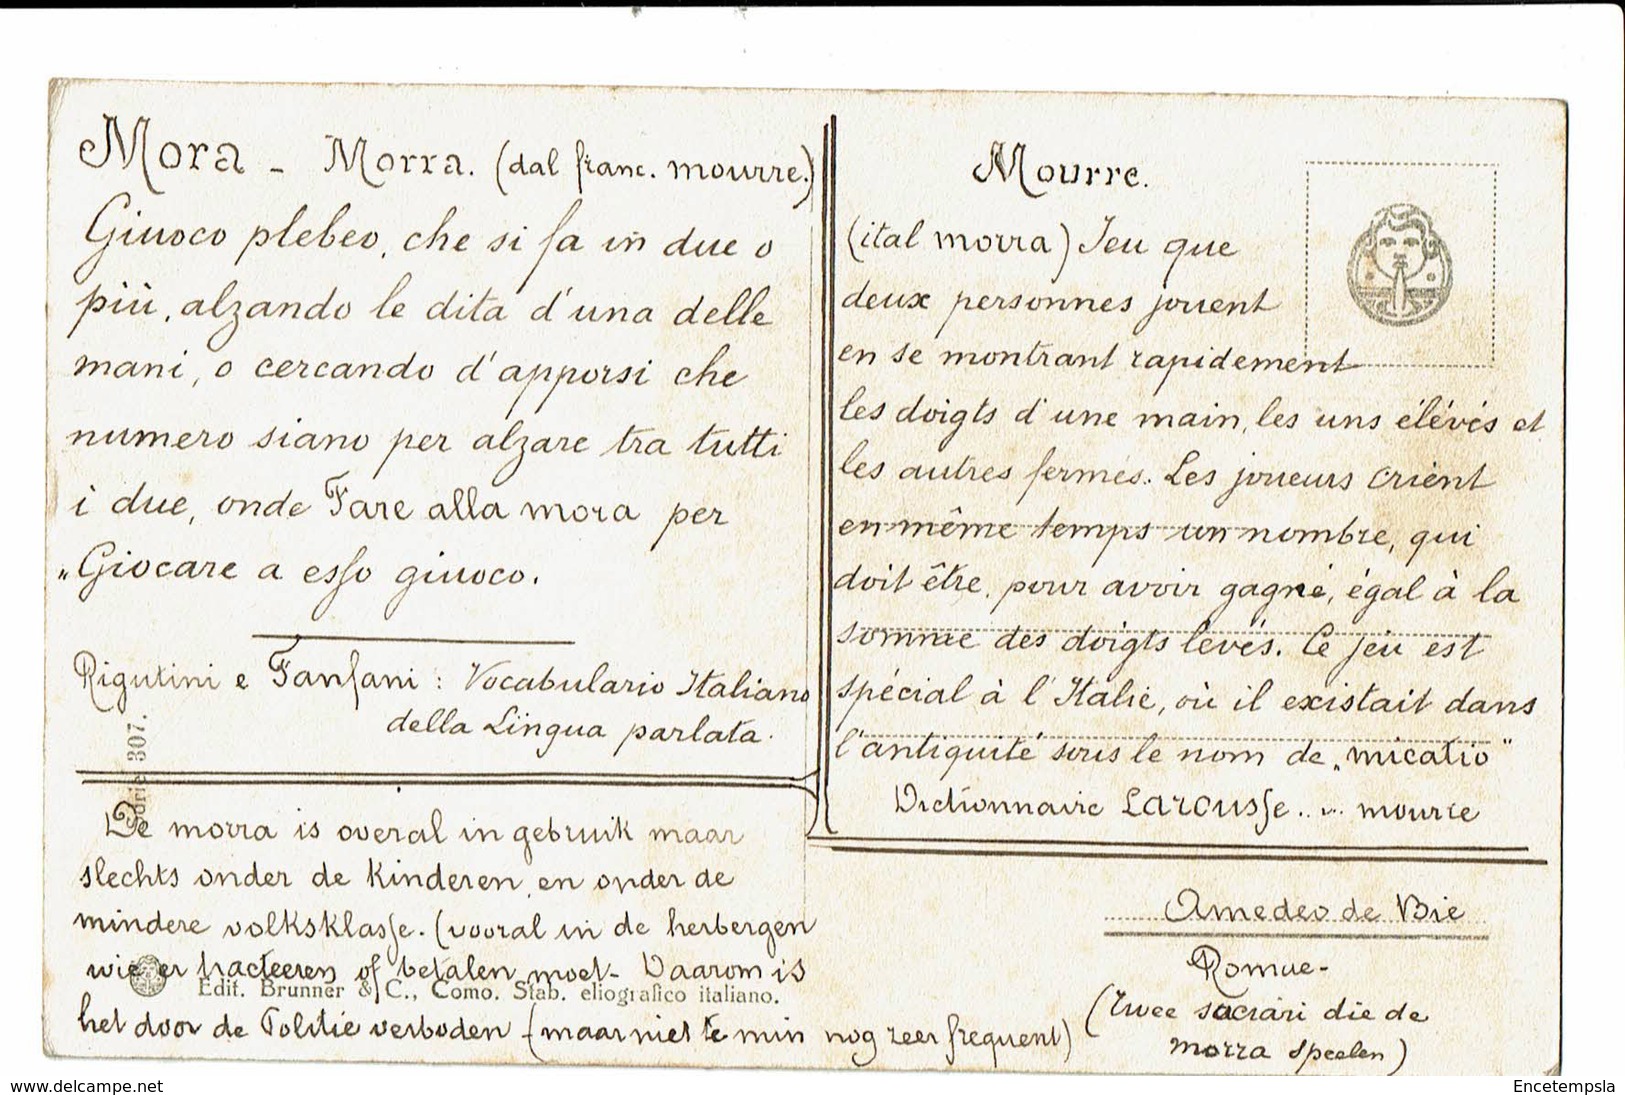 Mora - Morra. (dal franc. mourre.)
Giuoco plebeo, che si fa in due o
più, alzando le dita d'una delle
mani, o cercando d'apporsi che
numero siano per alzare tra tutti
i due, onde Fare alla mora per
„Giocare a esso giuoco.
Rigutini e Fanfani : Vocabulario Italiano
della Lingua parlata.
Serie 307.
De morra is overal in gebruik maar
slechts onder de Kinderen, en onder de
mindere volksklasse. (vooral in de herbergen
wie er tracteeren of betalen moet - Daarom is
Edit. Brunner & C., Como. Stab. eliografico italiano.
het door de Politie verboden - (maar niet te min nog zeer frequent)
Mourre.
(ital morra) Jeu que
deux personnes jouent
en se montrant rapidement
les doigts d'une main, les uns élévés et
les autres fermés. Les joueurs crient
en même temps un nombre, qui
doit être, pour avoir gagné, égal à la
somme des doigts levés. Ce jeu est
spécial à l'Italie, où il existait dans
l'antiquité sous le nom de „micatio"
Dictionnaire Larousse .. v. mourre
Amedeo de Bie
Romae-
(twee sacrari die de
morra speelen)
www.delcampe.net
Encetempsla